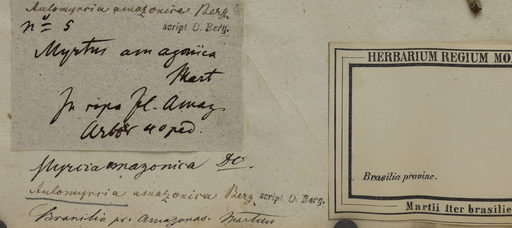 Aulomyrcia amazonica Berg.
script. O. Berg.
nº 5
Myrtus amazonica
Mart
In ripa fl. Amaz.
Arbor 40 ped.
Myrcia amazonica DC.
Aulomyrcia amazonica Berg script. O. Berg.
Brasilia pr. Amazonas. Martius
HERBARIUM REGIUM MO
Brasilia provinc.
Martii Iter brasilie